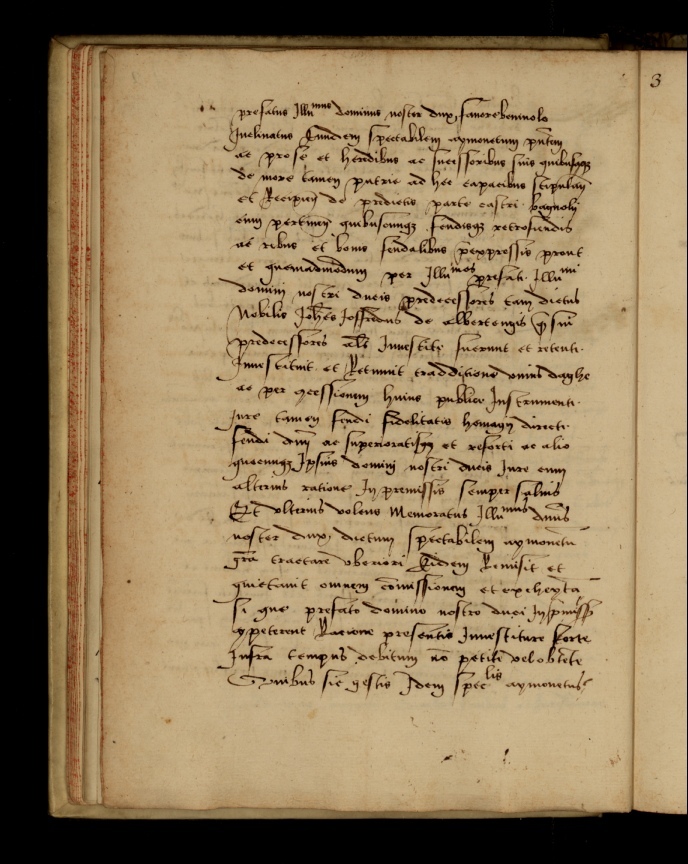 3
prefatus Illu^mus dominus noster dux, favore benivolo
Inclinatus Eundem spectabilem aymonetum pñtem
ac pro se et heredibus ac successoribus suis quibuscūqz
de more tamen patrie ad hec capacibus stipulañ
et Recipieñ de predictis parte castri bagnolij
cum pertineñ quibuscumqz feudisqz retrofeudis
ac rebus et bonis feudalibus p̃expressis prout
et quemadmodum per Illu^mos prefati Illu^mi
domini nostri ducis predecessores tam dictus
Nobilis Joh̃es Joffredus de Albertengis q̃ sui
predecessores als̃ Investiti fuerunt et retenti
Investivit et Retinuit tradditione unius daghe
ac per concessionem huius publici Instrumenti
Jure tamen feudi fidelitatis homagij directi
feudi dñij ac superioratisqz et resorti ac alio
quocumqz Ipsius domini nostri ducis Jure cum
alterius ratione In premissis semper salvis
Et ulterius volens Memoratus Illu^mus dñus
noster dux, dictum spectabilem aymonetū
grã tractare uberiori Eidem Remisit et
quictavit omnem cōmissionem et excheytã
si que prefato domino nostro duci In p̃missis
competerent Racione presentis Investiture forte
Infra tempus debitum nō petite vel obtēte
Quibus sic gestis Idem spec^lis aymonetus